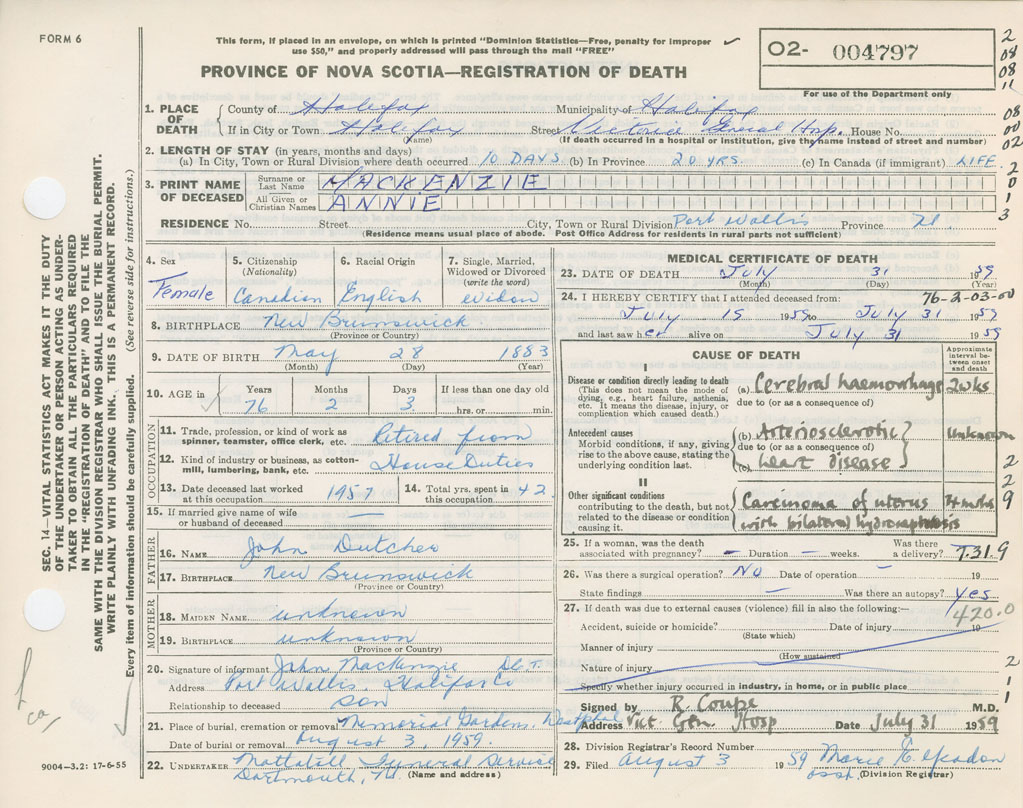 FORM 6
This form, if placed in an envelope, on which is printed "Dominion Statistics—Free, penalty for improper
use $50," and properly addressed will pass through the mail "FREE"
PROVINCE OF NOVA SCOTIA—REGISTRATION OF DEATH
02- 004797
For use of the Department only
2
08
08
11
08
00
02
2
0
1
3
1. PLACE OF DEATH { County of Halifax Municipality of Halifax
If in City or Town Halifax Street Victoria General Hosp. House No.
(Name) (If death occurred in a hospital or institution, give the name instead of street and number)
2. LENGTH OF STAY (in years, months and days)
(a) In City, Town or Rural Division where death occurred 10 DAYS (b) In Province 20 YRS. (c) In Canada (if immigrant) LIFE
3. PRINT NAME OF DECEASED Surname or Last Name MACKENZIE
All Given or Christian Names ANNIE
RESIDENCE No. Street City, Town or Rural Division Port Wallis Province
(Residence means usual place of abode. Post Office Address for residents in rural parts not sufficient)
4. Sex Female
5. Citizenship (Nationality) Canadian
6. Racial Origin English
7. Single, Married, Widowed or Divorced (write the word) Widow
8. BIRTHPLACE New Brunswick
(Province or Country)
9. DATE OF BIRTH May 28 1883
(Month) (Day) (Year)
10. AGE in Years 76 Months 2 Days 3 If less than one day old hrs. or min.
OCCUPATION
11. Trade, profession, or kind of work as spinner, teamster, office clerk, etc. Retired from
12. Kind of industry or business, as cotton-mill, lumbering, bank, etc. House Duties
13. Date deceased last worked at this occupation 1957
14. Total yrs. spent in this occupation 42
15. If married give name of wife or husband of deceased —
FATHER
16. NAME John Dutcher
17. BIRTHPLACE New Brunswick
(Province or Country)
MOTHER
18. MAIDEN NAME unknown
19. BIRTHPLACE unknown
(Province or Country)
20. Signature of informant John MacKenzie
Address Port Wallis, Halifax Co
Relationship to deceased son
21. Place of burial, cremation or removal Memorial Gardens, Westphal
Date of burial or removal August 3, 1959.
22. UNDERTAKER Mattatall Funeral Service
Dartmouth, (Name and address)
MEDICAL CERTIFICATE OF DEATH
23. DATE OF DEATH July 31 1959
(Month) (Day) (Year)
24. I HEREBY CERTIFY that I attended deceased from: 76-2-03-00
July 15 1959 to July 31 1959
and last saw her alive on July 31 1959
CAUSE OF DEATH
Approximate interval between onset and death
I
Disease or condition directly leading to death
(This does not mean the mode of dying, e.g., heart failure, asthenia, etc. It means the disease, injury, or complication which caused death.)
(a) Cerebral haemorrhage 2 wks
due to (or as a consequence of)
Antecedent causes
Morbid conditions, if any, giving rise to the above cause, stating the underlying condition last.
(b) Arteriosclerotic unknown
due to (or as a consequence of)
(c) heart disease
2
II
2
Other significant conditions contributing to the death, but not related to the disease or condition causing it.
Carcinoma of uterus 4 mths
9
with bilateral hydronephrosis
25. If a woman, was the death associated with pregnancy? — Duration — weeks. Was there a delivery?
7.31.9
26. Was there a surgical operation? No Date of operation — 19
State findings — Was there an autopsy? yes
27. If death was due to external causes (violence) fill in also the following:—
420.0
Accident, suicide or homicide? Date of injury 19
(State which)
Manner of injury
(How sustained)
Nature of injury
2
Specify whether injury occurred in industry, in home, or in public place
1
Signed by R. Coupe M.D.
1
Address Vict. Gen. Hosp Date July 31 1959
28. Division Registrar's Record Number
29. Filed August 3 1959 Marie E.
(Division Registrar)
SEC. 14—VITAL STATISTICS ACT MAKES IT THE DUTY
OF THE UNDERTAKER OR PERSON ACTING AS UNDER-
TAKER TO OBTAIN ALL THE PARTICULARS REQUIRED
IN THE "REGISTRATION OF DEATH" AND TO FILE THE
SAME WITH THE DIVISION REGISTRAR WHO SHALL ISSUE THE BURIAL PERMIT.
WRITE PLAINLY WITH UNFADING INK. THIS IS A PERMANENT RECORD.
Every item of information should be carefully supplied. (See reverse side for instructions.)
9004-3.2: 17-6-55